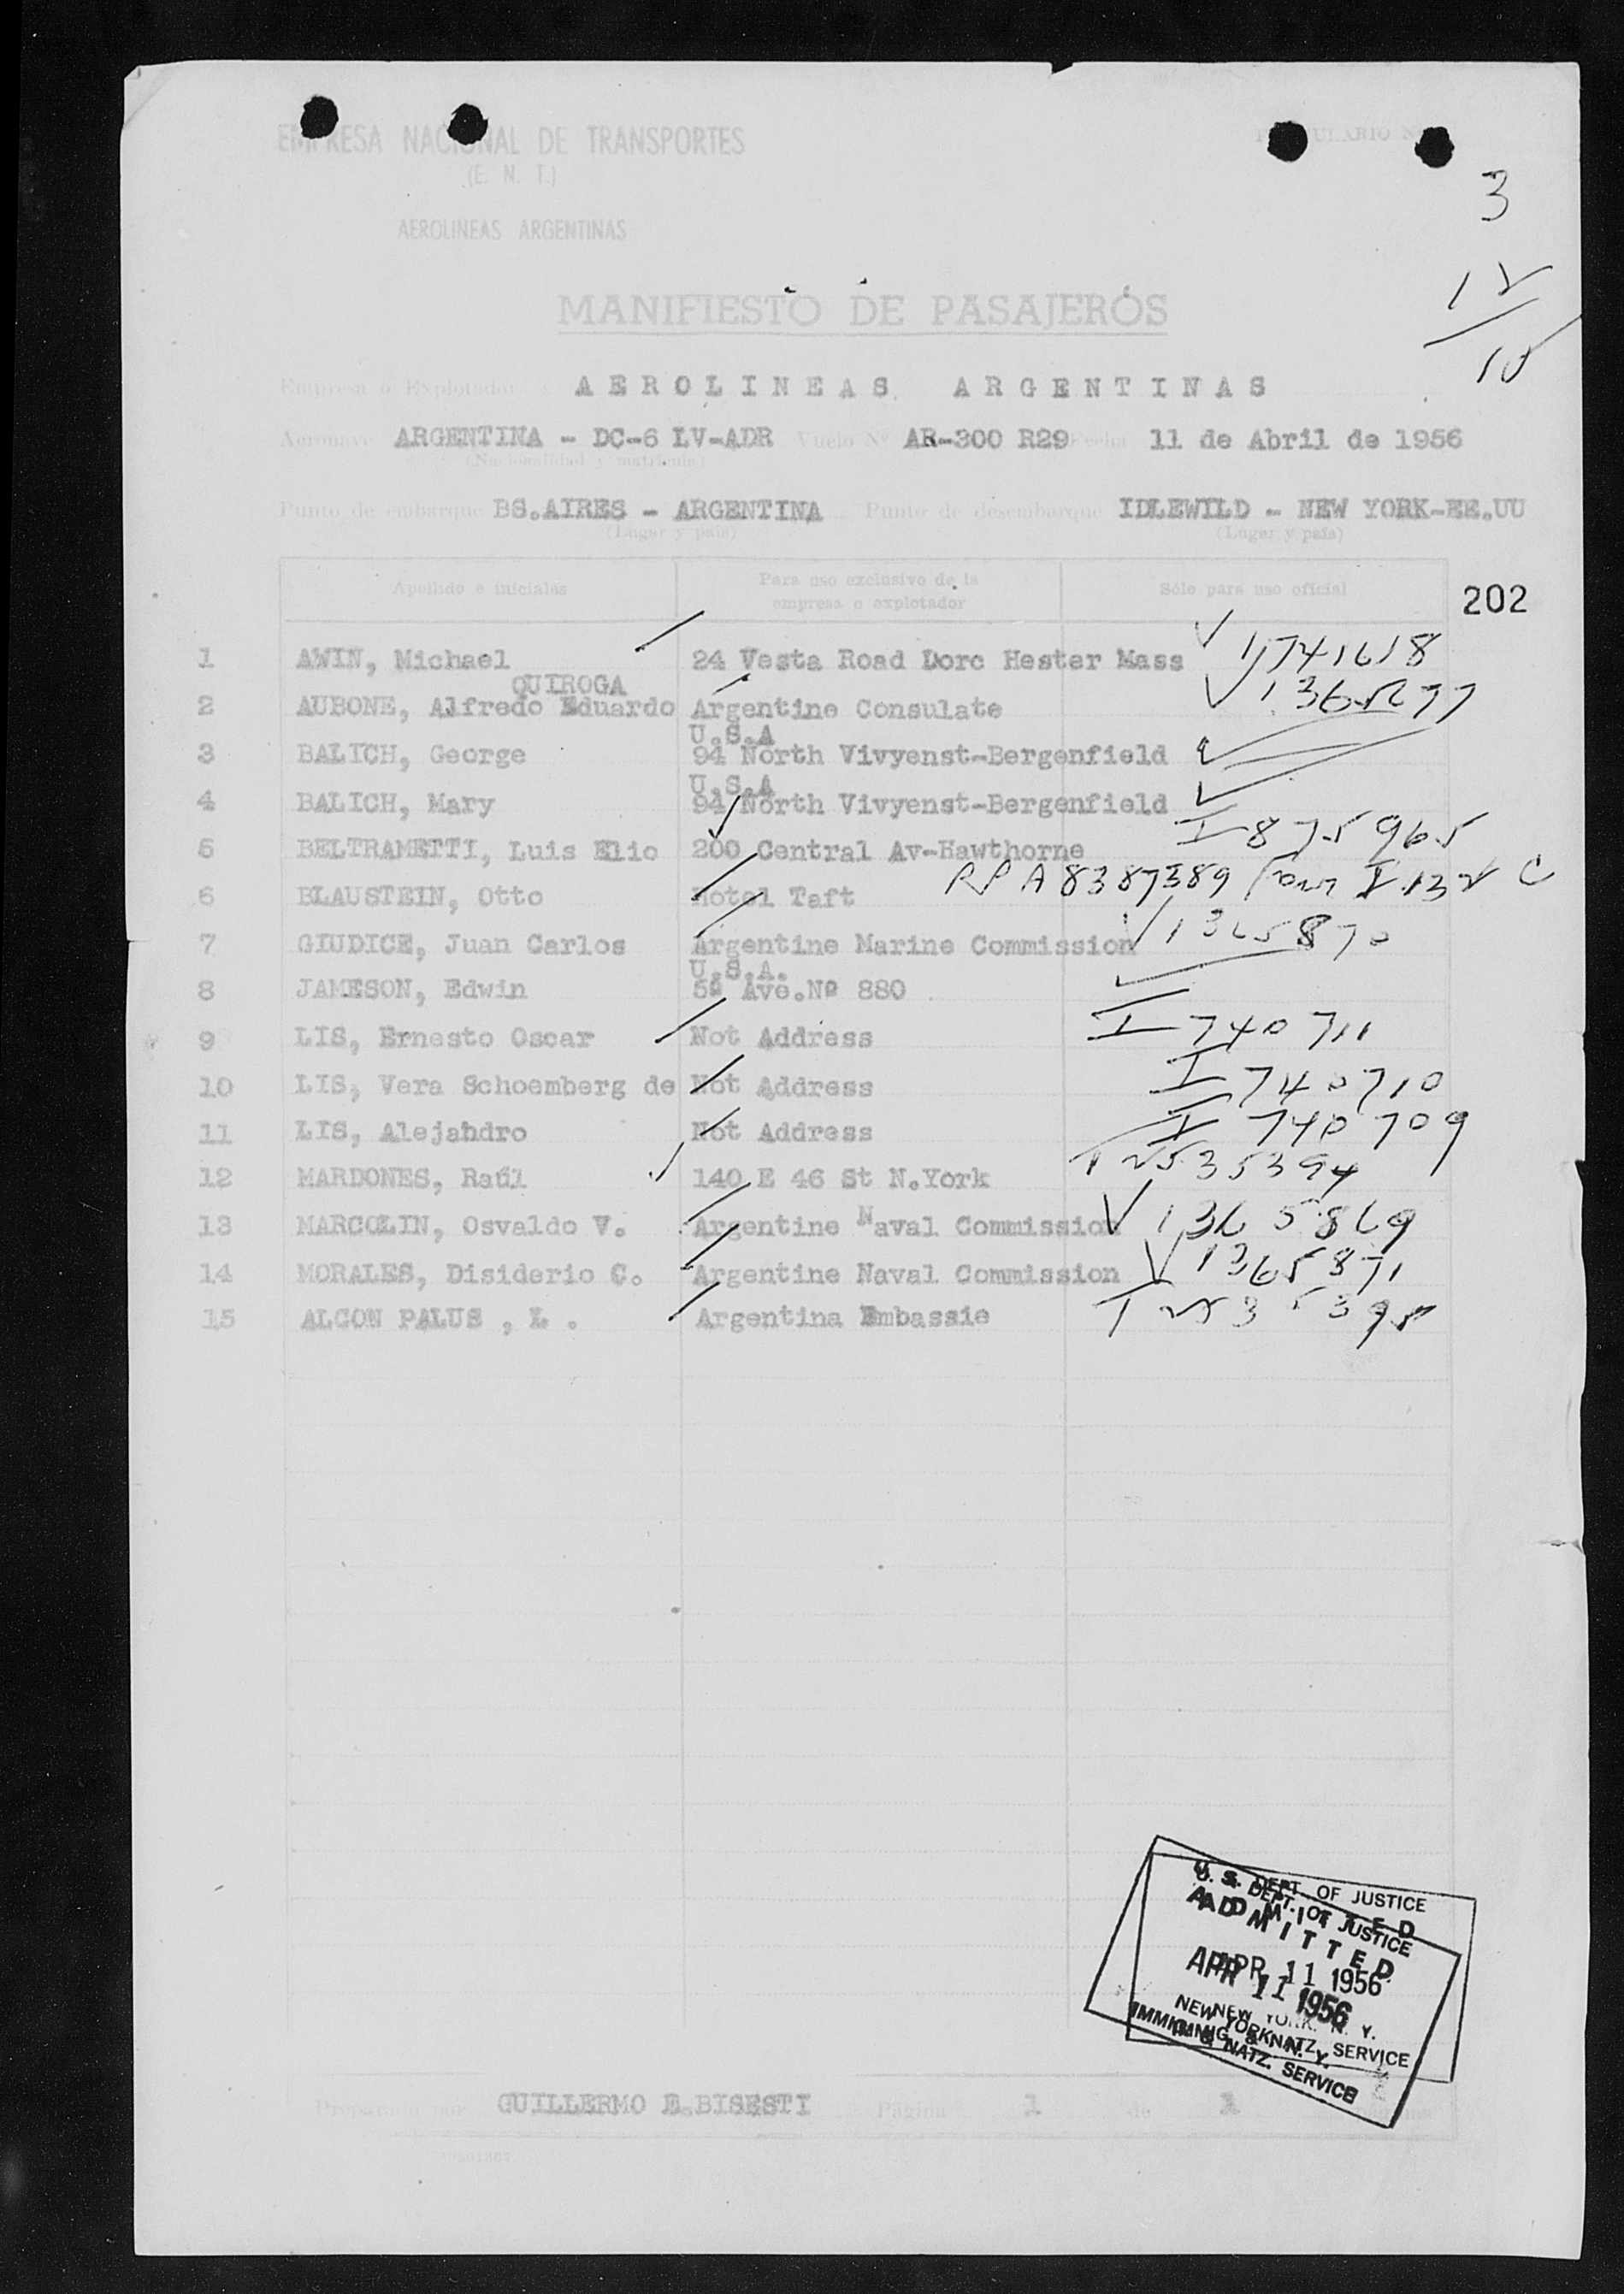 EMPRESA NACIONAL DE TRANSPORTES
(E. N. T.)
AEROLINEAS ARGENTINAS
3
12
10
MANIFIESTO DE PASAJEROS
Empresa o Explotador AEROLINEAS ARGENTINAS
Aeronave ARGENTINA - DC-6 LV-ADR Vuelo Nº AR-300 R29 Fecha 11 de Abril de 1956
(Nacionalidad y matrícula)
Punto de embarque BS.AIRES - ARGENTINA Punto de desembarque IDLEWILD - NEW YORK-EE.UU
(Lugar y país) (Lugar y país)
Apellido e iniciales Para uso exclusivo de la empresa o explotador Sólo para uso oficial
202
1 AWIN, Michael 24 Vesta Road Dorc Hester Mass V 1741618
QUIROGA
2 AUBONE, Alfredo Eduardo Argentine Consulate V
U.S.A
3 BALICH, George 94 North Vivyenst-Bergenfield
U.S.A
4 BALICH, Mary 94 North Vivyenst-Bergenfield
5 BELTRAMETTI, Luis Elio 200 Central Av-Hawthorne I 875965
6 BLAUSTEIN, Otto Hotel Taft A8387389
7 GIUDICE, Juan Carlos Argentine Marine Commission V 1365870
U.S.A.
8 JAMESON, Edwin 5ª Ave.Nº 880
9 LIS, Ernesto Oscar Not Address I 740711
10 LIS, Vera Schoemberg de Not Address I 740710
11 LIS, Alejahdro Not Address I 740709
12 MARDONES, Raúl 140 E 46 St N.York T 2535394
13 MARCOLIN, Osvaldo V. Argentine Naval Commission V 1365869
14 MORALES, Disiderio C. Argentine Naval Commission V 1365871
15 ALCON PALUS , L . Argentina Embassie T 2535395
U. S. DEPT. OF JUSTICE
ADMITTED
APR 11 1956
NEW YORK, N. Y.
IMMIG. & NATZ. SERVICE
U. S. DEPT. OF JUSTICE
ADMITTED
APR 11 1956
NEW YORK, N. Y.
IMMIG. & NATZ. SERVICE
Preparado por GUILLERMO E.BISESTI Página 1 de 1